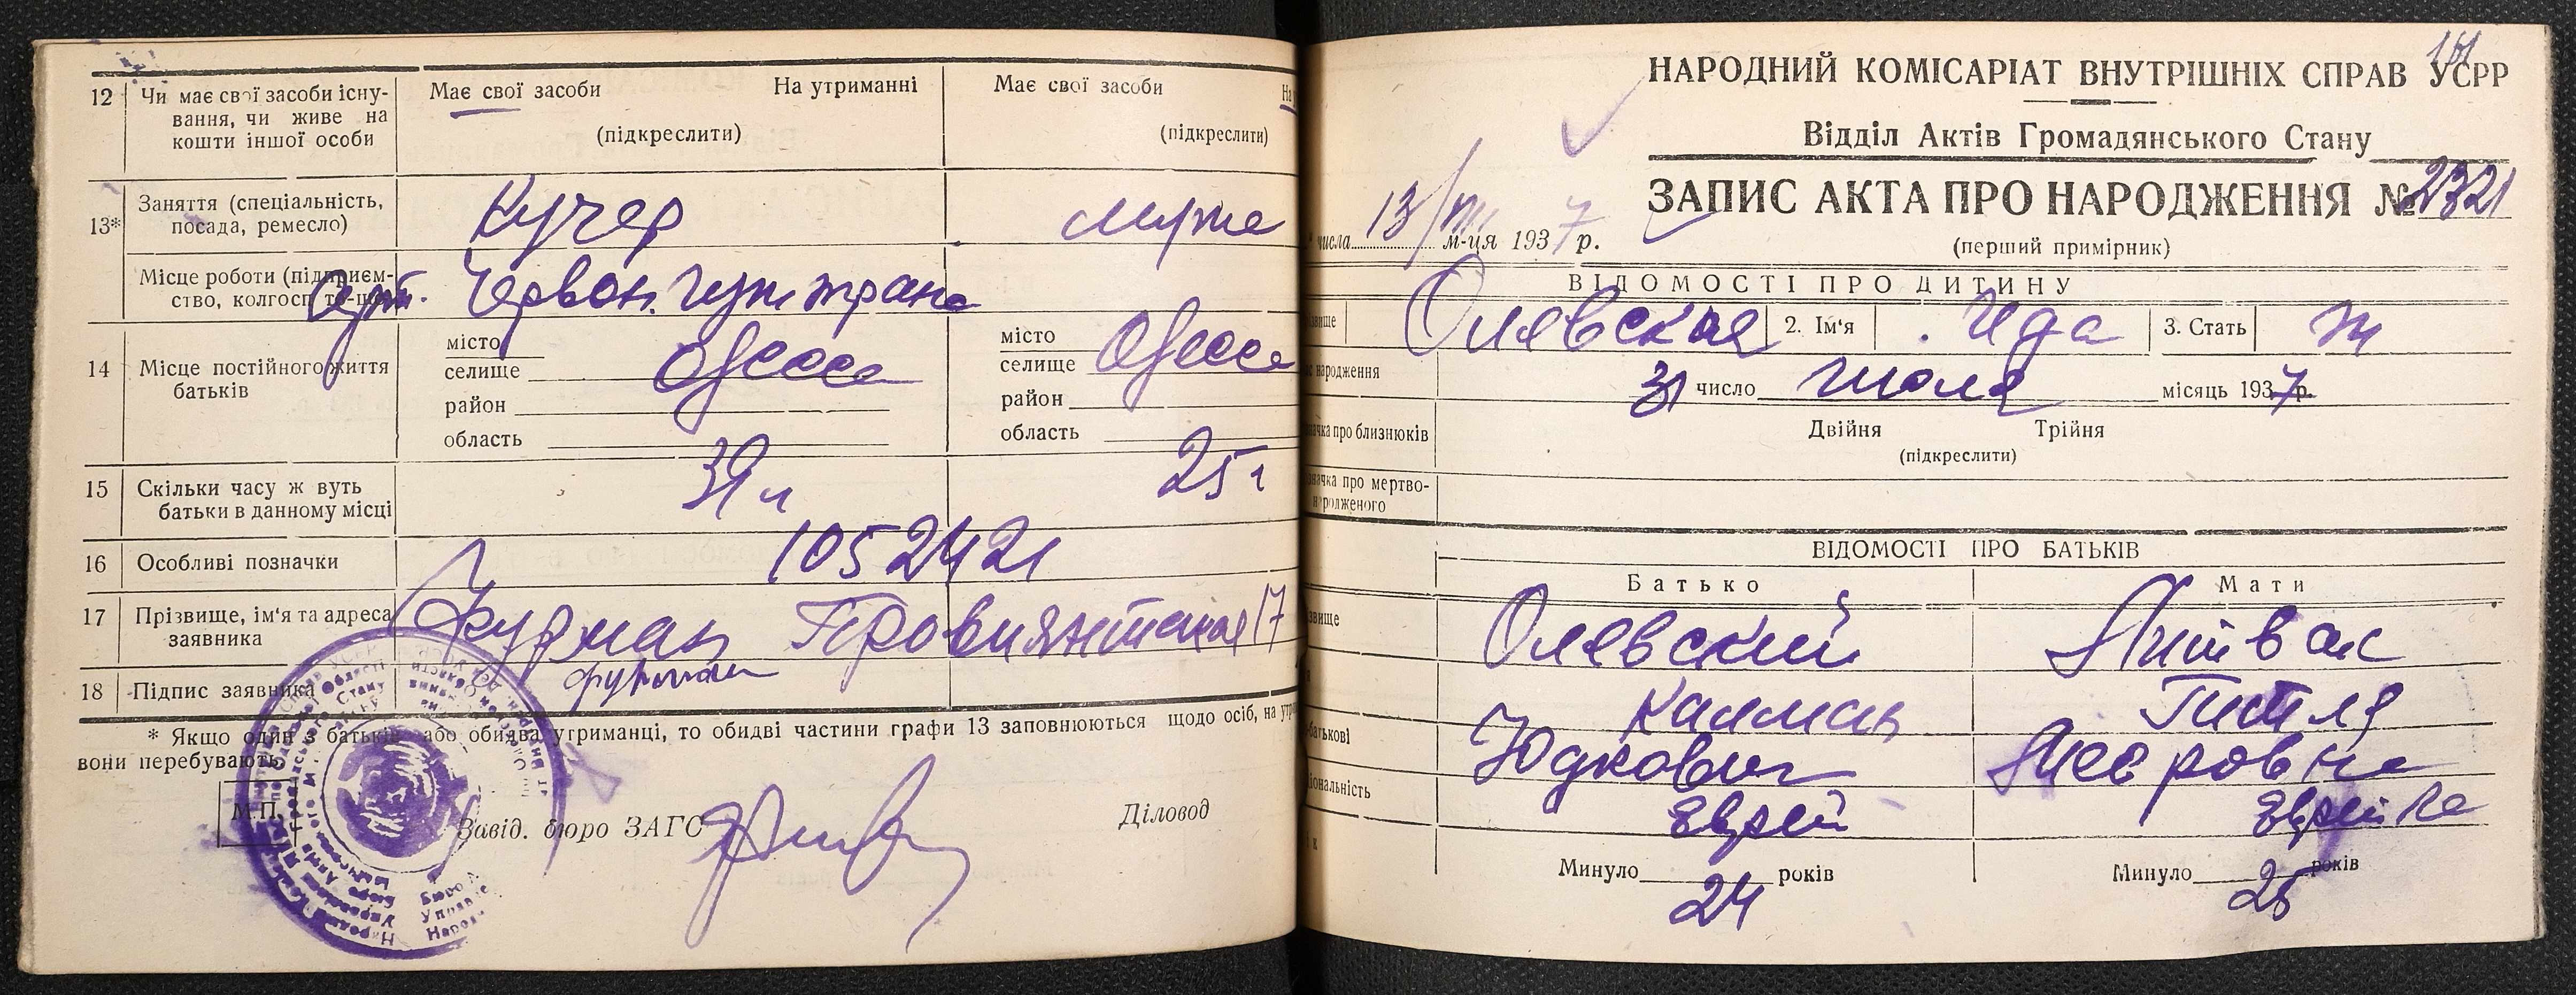 12 Чи має свої засоби існу-
вання, чи живе на
кошти іншої особи
Має свої засоби На утриманні
(підкреслити)
Має свої засоби
(підкреслити)
13* Заняття (спеціальність,
посада, ремесло)
Кучер
Місце роботи (підприєм-
ство, колгосп то-що)
Арт. Червон. гуж транс
14 Місце постійного життя
батьків
місто
селище Одесса
район
область
місто
селище Одесса
район
область
15 Скільки часу ж вуть
батьки в данному місці
25 г
16 Особливі позначки
1052421
17 Прізвище, ім'я та адреса
заявника
Фурман Провиянтская 17
18 Підпис заявника
фурман
* Якщо один з батьків або обидва утриманці, то обидві частини графи 13 заповнюються щодо осіб, на
вони перебувають.
М.П.
Завід. бюро ЗАГС
Діловод
161
НАРОДНИЙ КОМІСАРІАТ ВНУТРІШНІХ СПРАВ УСРР
Відділ Актів Громадянського Стану
ЗАПИС АКТА ПРО НАРОДЖЕННЯ № 2321
числа 13/VIII м-ця 1937 р.
(перший примірник)
ВІДОМОСТІ ПРО ДИТИНУ
Олевская 2. Ім'я Ида 3. Стать ж
народження
31 число Июля місяць 1937 р.
про близнюків
Двійня Трійня
(підкреслити)
про мертво-
народженого
ВІДОМОСТІ ПРО БАТЬКІВ
Батько Мати
Олевский Литвак
Калман Гитля
Юдкович Лееровна
Еврей Еврейка
Минуло 24 років
Минуло 25 років